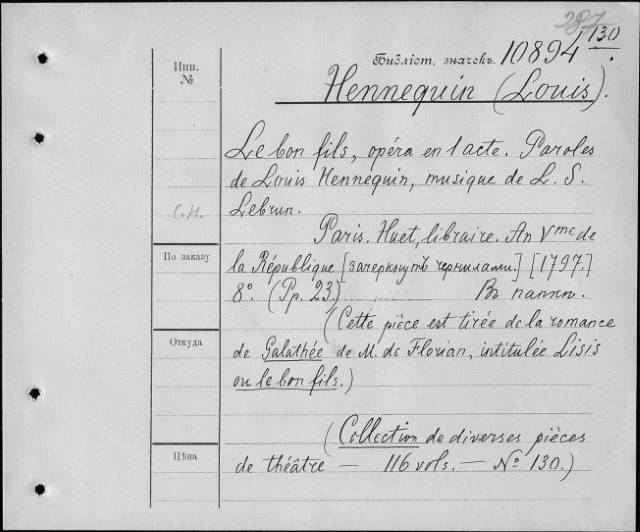 287
Библіот. значекъ 10894 130.
Инв.
№
Hennequin (Louis).
Le bon fils, opéra en 1 acte. Paroles
de Louis Hennequin, musique de L. S.
Lebrun.
Paris. Huet, libraire. An Vme de
По заказу
la République [зачеркнутъ чернилами.] [1797.]
8º. (Pp. 23.) Въ папкѣ.
(Cette pièce est tirée de la romance
Откуда
de Galathée de M. de Florian, intitulée Lisis
ou le bon fils.)
(Collection de diverses pièces
Цѣна
de théâtre — 116 vols. — № 130.)